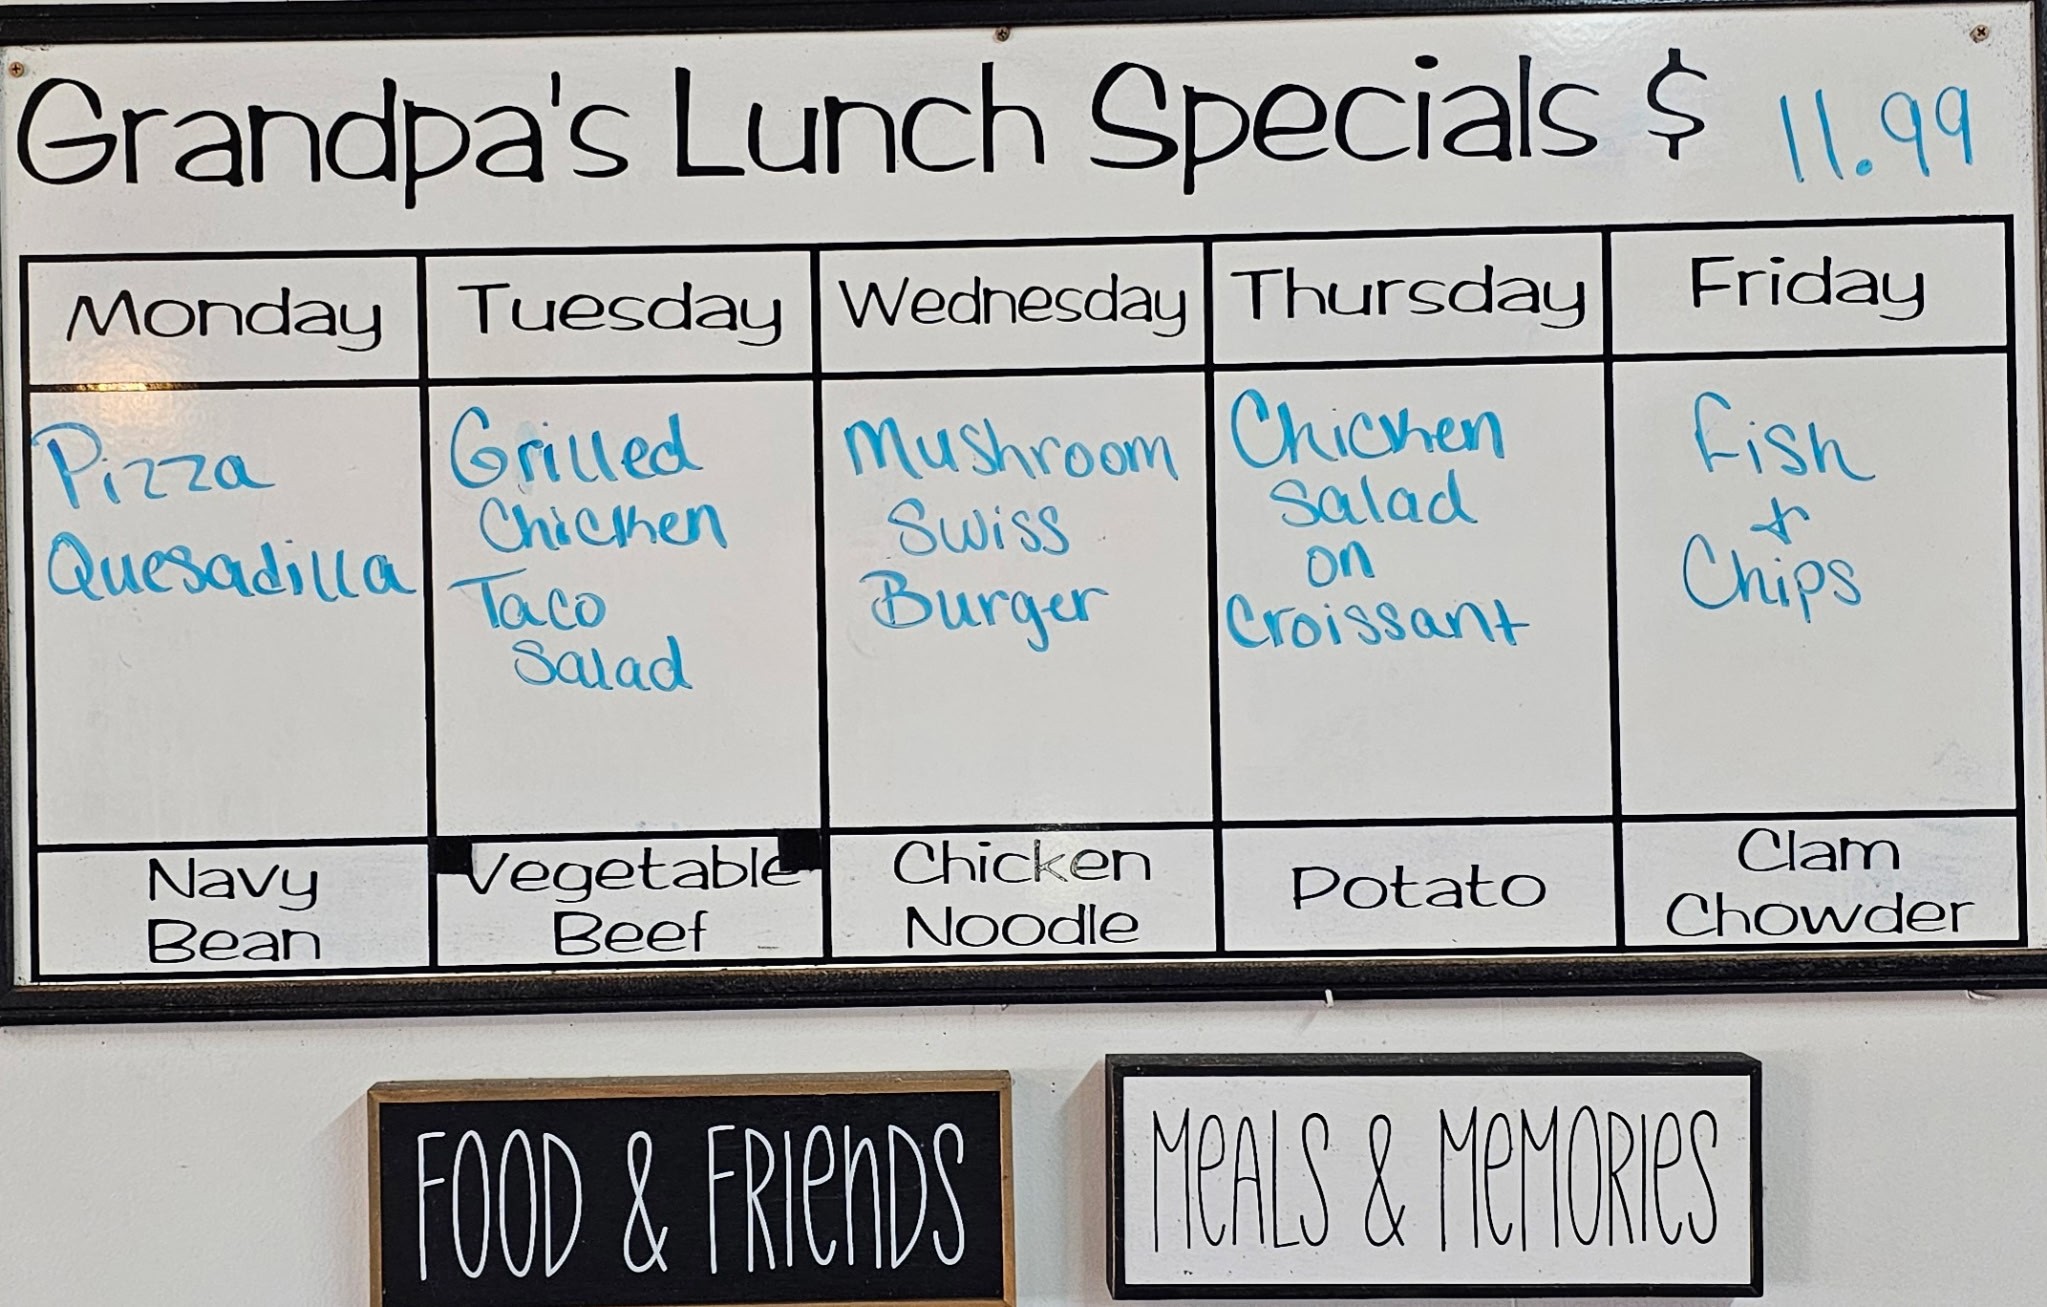 Grandpa's Lunch Specials $ 11.99
Monday
Tuesday
Wednesday
Thursday
Friday
Pizza
Quesadilla
Grilled
Chicken
Taco
Salad
Mushroom
Swiss
Burger
Chicken
Salad
on
Croissant
Fish
&
Chips
Navy
Bean
Vegetable
Beef
Chicken
Noodle
Potato
Clam
Chowder
FOOD & FRIenDS
MeALS & MeMORIeS